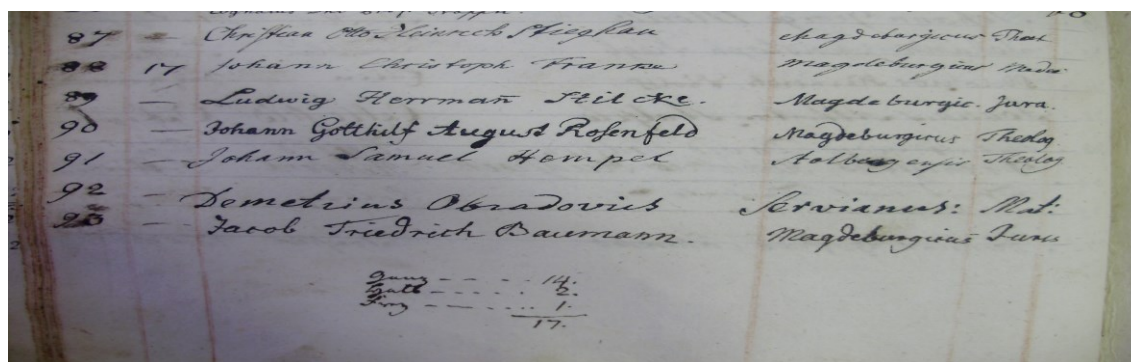 87 Christian Otto Heinrich Stieghan Magdeburgicus Theol
88 17 Johann Christoph Franke Magdeburgicus
89 — Ludwig Herrmañ Stilcke. Magdeburgic. Jura.
90 — Johann Gotthilf August Rosenfeld Magdeburgicus Theolog
91 — Johann Samuel Hempel Theolog
92 — Demetrius Obradovics Servianus: Mat:
93 — Jacob Friedrich Baumann. Magdeburgicus Juris
Ganz - - - - - 14.
Halb - - - - - 2.
Frey - - - - - 1.
17.